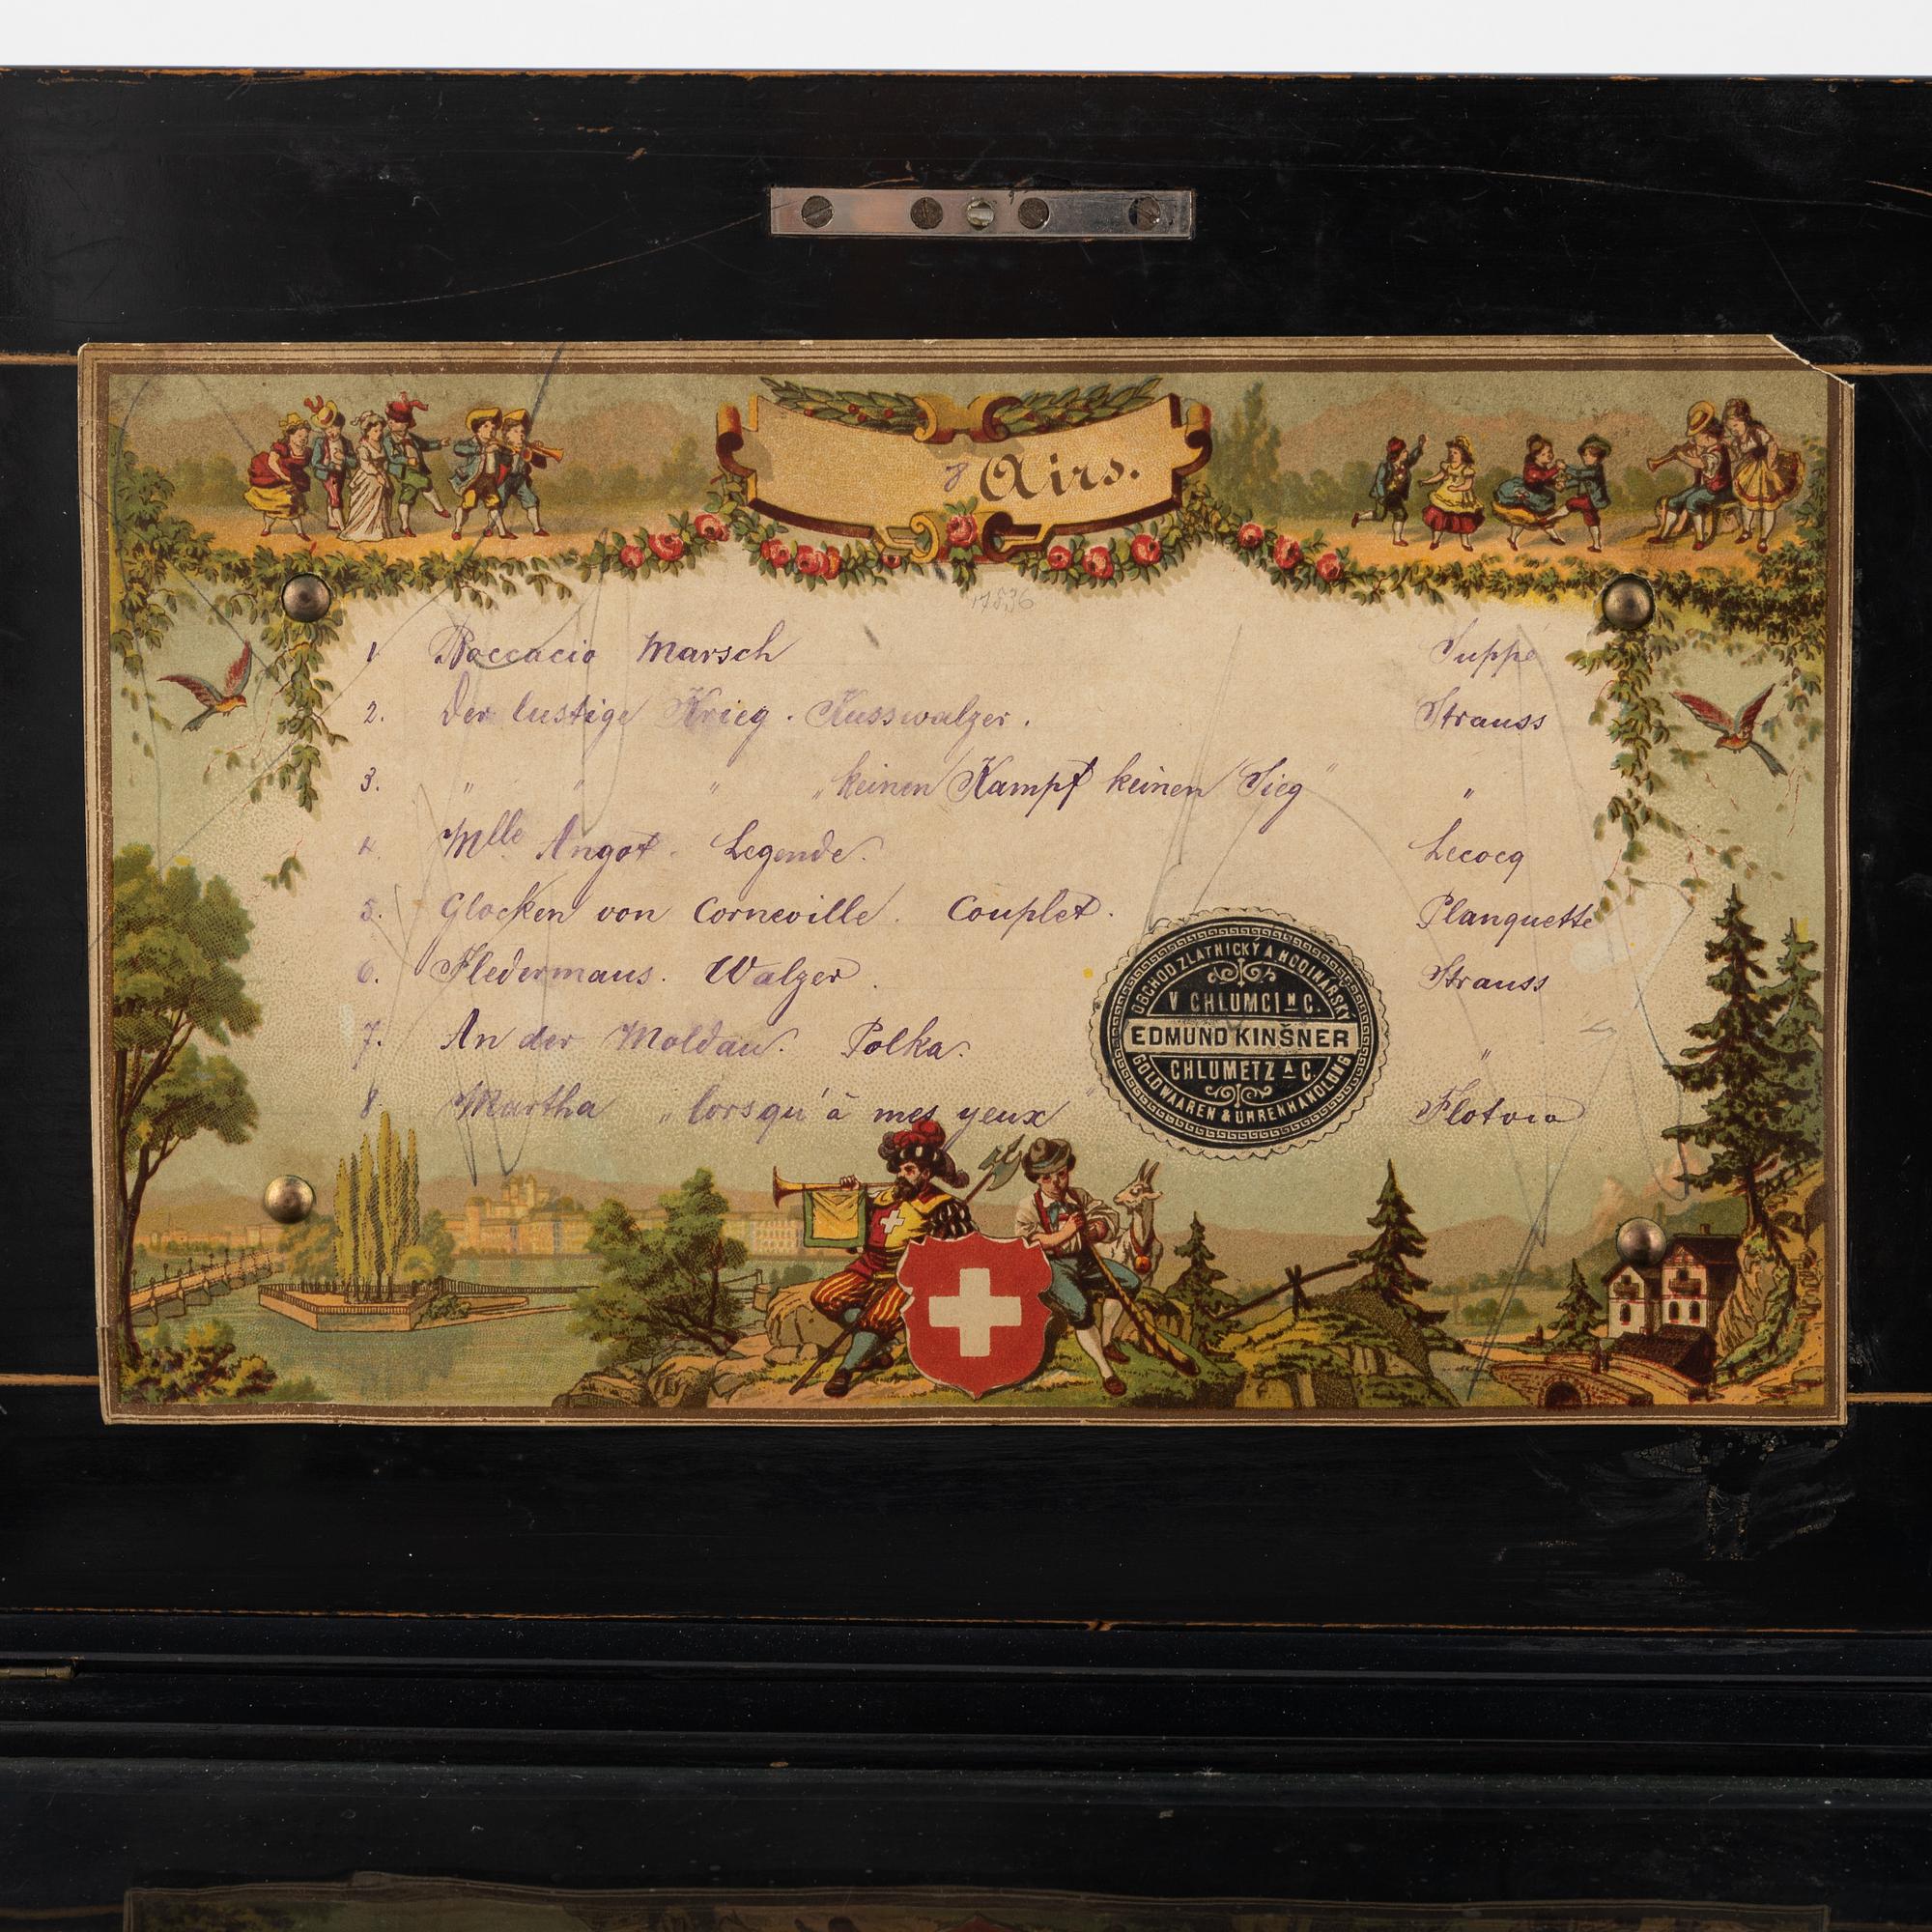 8 Airs.
17536
1 Boccacio Marsch Suppé
2. Der lustige Krieg. Kusswalzer. Strauss
3. " " " „keinen Kampf keinen Sieg" "
4. Mlle Angot. Legende. Lecocq
5. Glocken von Corneville. Couplet. Planquette
6. Fledermaus. Walzer. Strauss
7. An der Moldau. Polka. "
8. Martha „lorsqu'à mes yeux" Flotow
OBCHOD ZLATNICKÝ A HODINÁŘSKÝ
V CHLUMCI N C.
EDMUND KINŠNER
CHLUMETZ A C.
GOLDWAAREN & UHRENHANDLUNG